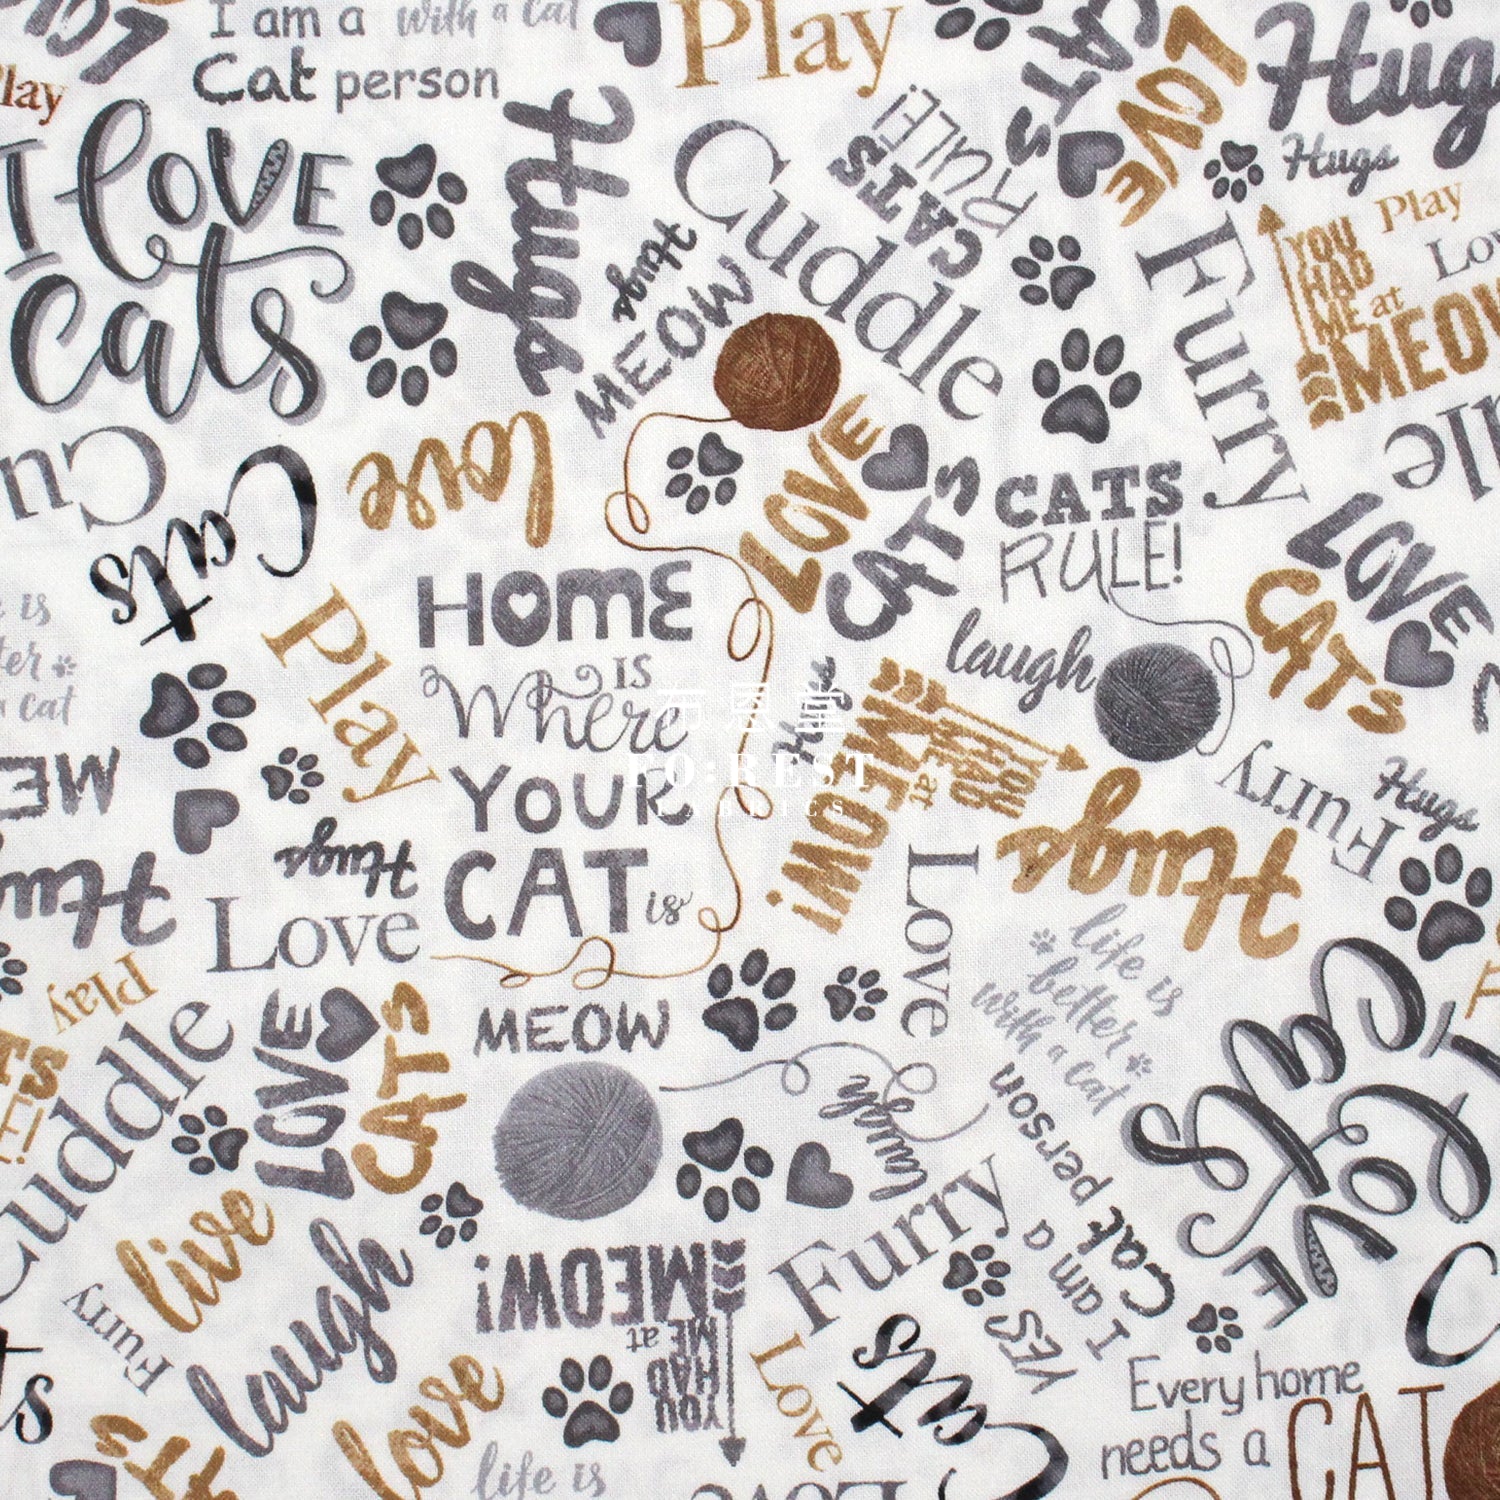 I am a
Cat person
with a cat
Play
Play
I love
cats
Hugs
Hugs
MEOW
Cuddle
CATS
RULE!
CATS
LOVE
Hugs
Hugs
Play
YOU
HAD
ME at
MEOW
Furry
Cats
love
LOVE
CATS
CATS
RULE!
LOVE
CATS
is
a cat
Play
HOME
IS
Where
YOUR
CAT
is
布景堂
FO:REST
Hugs
laugh
YOU
HAD
ME
at
MEOW!
Furry
Hugs
Hugs
Hugs
Love
Love
Play
Cuddle
LOVE
CATS
MEOW
life is
better
with a cat
I love
cats
laugh
I am a
Cat person
live
laugh
love
Furry
YOU
HAD
ME
at
MEOW!
Furry
Love
Cats
YES
life is
Every home
needs a
CAT